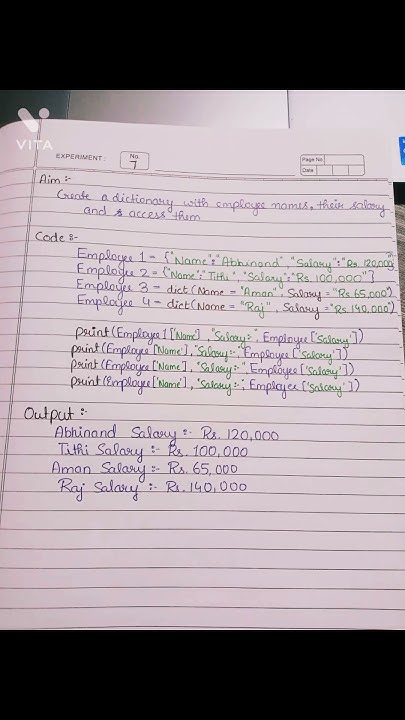 VITA
EXPERIMENT :
No.
7
Page No.
Date
Aim :-
Create a dictionary with employee names, their salary
and access them
Code :-
Employee 1 = {"Name":"Abhinand", "Salary":"Rs. 120,000}
Employee 2 = {"Name":"Tithi", "Salary":"Rs. 100,000"}
Employee 3 = dict(Name = "Aman", Salary = "Rs 65,000")
Employee 4 = dict(Name = "Raj", Salary = "Rs 140,000")
print(Employee 1['Name'], "Salary:-", Employee ['Salary'])
print(Employee['Name'], "Salary:-", Employee ['Salary'])
print(Employee['Name'], "Salary:-", Employee ['Salary'])
print(Employee['Name'], "Salary:-", Employee ['Salary'])
Output :-
Abhinand Salary :- Rs. 120,000
Tithi Salary :- Rs. 100,000
Aman Salary :- Rs. 65,000
Raj Salary :- Rs. 140,000